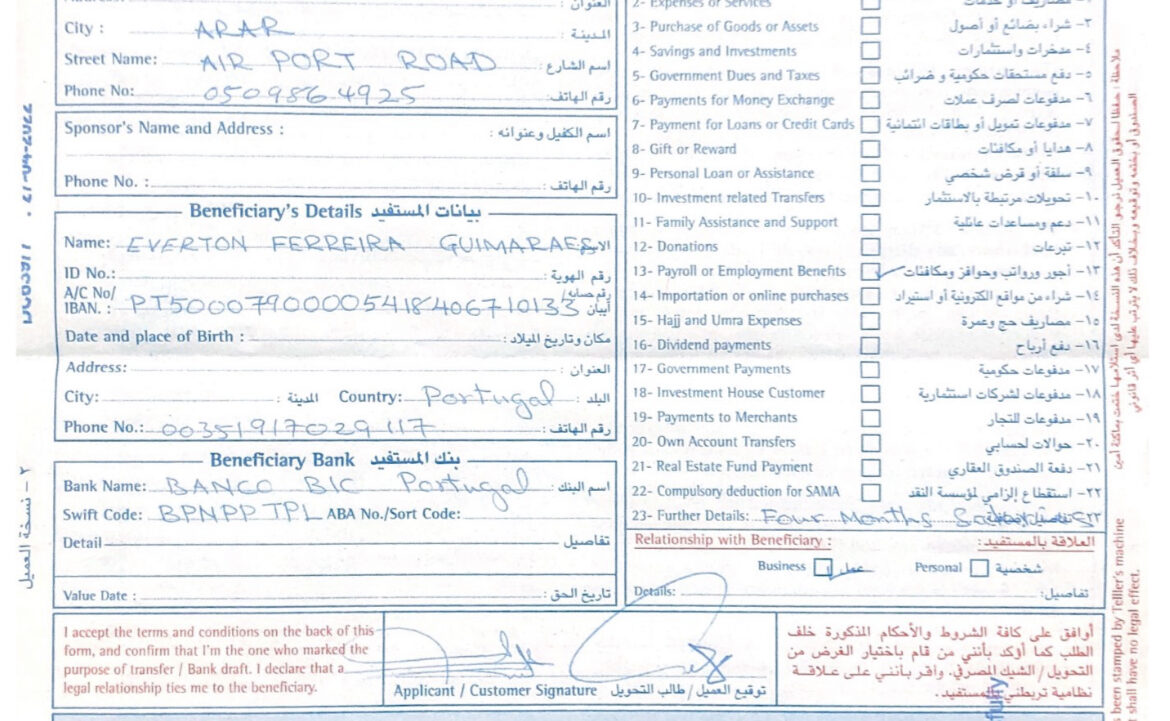 العنوان :
City : ARAR المدينة :
Street Name: AIR PORT ROAD اسم الشارع :
Phone No: 0509864925 رقم الهاتف:
Sponsor's Name and Address : اسم الكفيل وعنوانه :
Phone No. : رقم الهاتف :
Beneficiary's Details بيانات المستفيد
Name: EVERTON FERREIRA GUIMARAES الاسم
ID No.: رقم الهوية :
A/C No/ IBAN. : PT50007900005418406710133 رقم حسابه/ آيبان
Date and place of Birth : مكان وتاريخ الميلاد :
Address: العنوان :
City: المدينة : Country: Portugal البلد :
Phone No.: 00351917029117 رقم الهاتف:
Beneficiary Bank بنك المستفيد
Bank Name: BANCO BIC Portugal اسم البنك :
Swift Code: BPNPPTPL ABA No./Sort Code:
Detail تفاصيل
Value Date : تاريخ الحق :
2- Expenses or Services ٢- مصاريف أو خدمات
3- Purchase of Goods or Assets ٣- شراء بضائع أو أصول
4- Savings and Investments ٤- مدخرات واستشارات
5- Government Dues and Taxes ٥- دفع مستحقات حكومية و ضرائب
6- Payments for Money Exchange ٦- مدفوعات لصرف عملات
7- Payment for Loans or Credit Cards ٧- مدفوعات تمويل أو بطاقات ائتمانية
8- Gift or Reward ٨- هدايا أو مكافئات
9- Personal Loan or Assistance ٩- سلفة أو قرض شخصي
10- Investment related Transfers ١٠- تحويلات مرتبطة بالاستثمار
11- Family Assistance and Support ١١- دعم ومساعدات عائلية
12- Donations ١٢- تبرعات
13- Payroll or Employment Benefits ١٣- أجور ورواتب وحوافز ومكافئات
14- Importation or online purchases ١٤- شراء من مواقع الكترونية أو استيراد
15- Hajj and Umra Expenses ١٥- مصاريف حج وعمرة
16- Dividend payments ١٦- دفع أرباح
17- Government Payments ١٧- مدفوعات حكومية
18- Investment House Customer ١٨- مدفوعات لشركات استشارية
19- Payments to Merchants ١٩- مدفوعات للتجار
20- Own Account Transfers ٢٠- حوالات لحسابي
21- Real Estate Fund Payment ٢١- دفعة الصندوق العقاري
22- Compulsory deduction for SAMA ٢٢- استقطاع إلزامي لمؤسسة النقد
23- Further Details: Four Months ٢٣-
Relationship with Beneficiary : العلاقة بالمستفيد:
Business عمل Personal شخصية
Details: تفاصيل:
I accept the terms and conditions on the back of this
form, and confirm that I'm the one who marked the
purpose of transfer / Bank draft. I declare that a
legal relationship ties me to the beneficiary.
Applicant / Customer Signature توقيع العميل/ طالب التحويل
أوافق على كافة الشروط والأحكام المذكورة خلف
الطلب كما أؤكد بأنني من قام باختيار الغرض من
التحويل/ الشيك المصرفي. واقر بأنني على علاقة
نظامية تربطني بالمستفيد.
٢ - نسخة العميل
been stamped by Telller's machine
shall have no legal effect.
fully